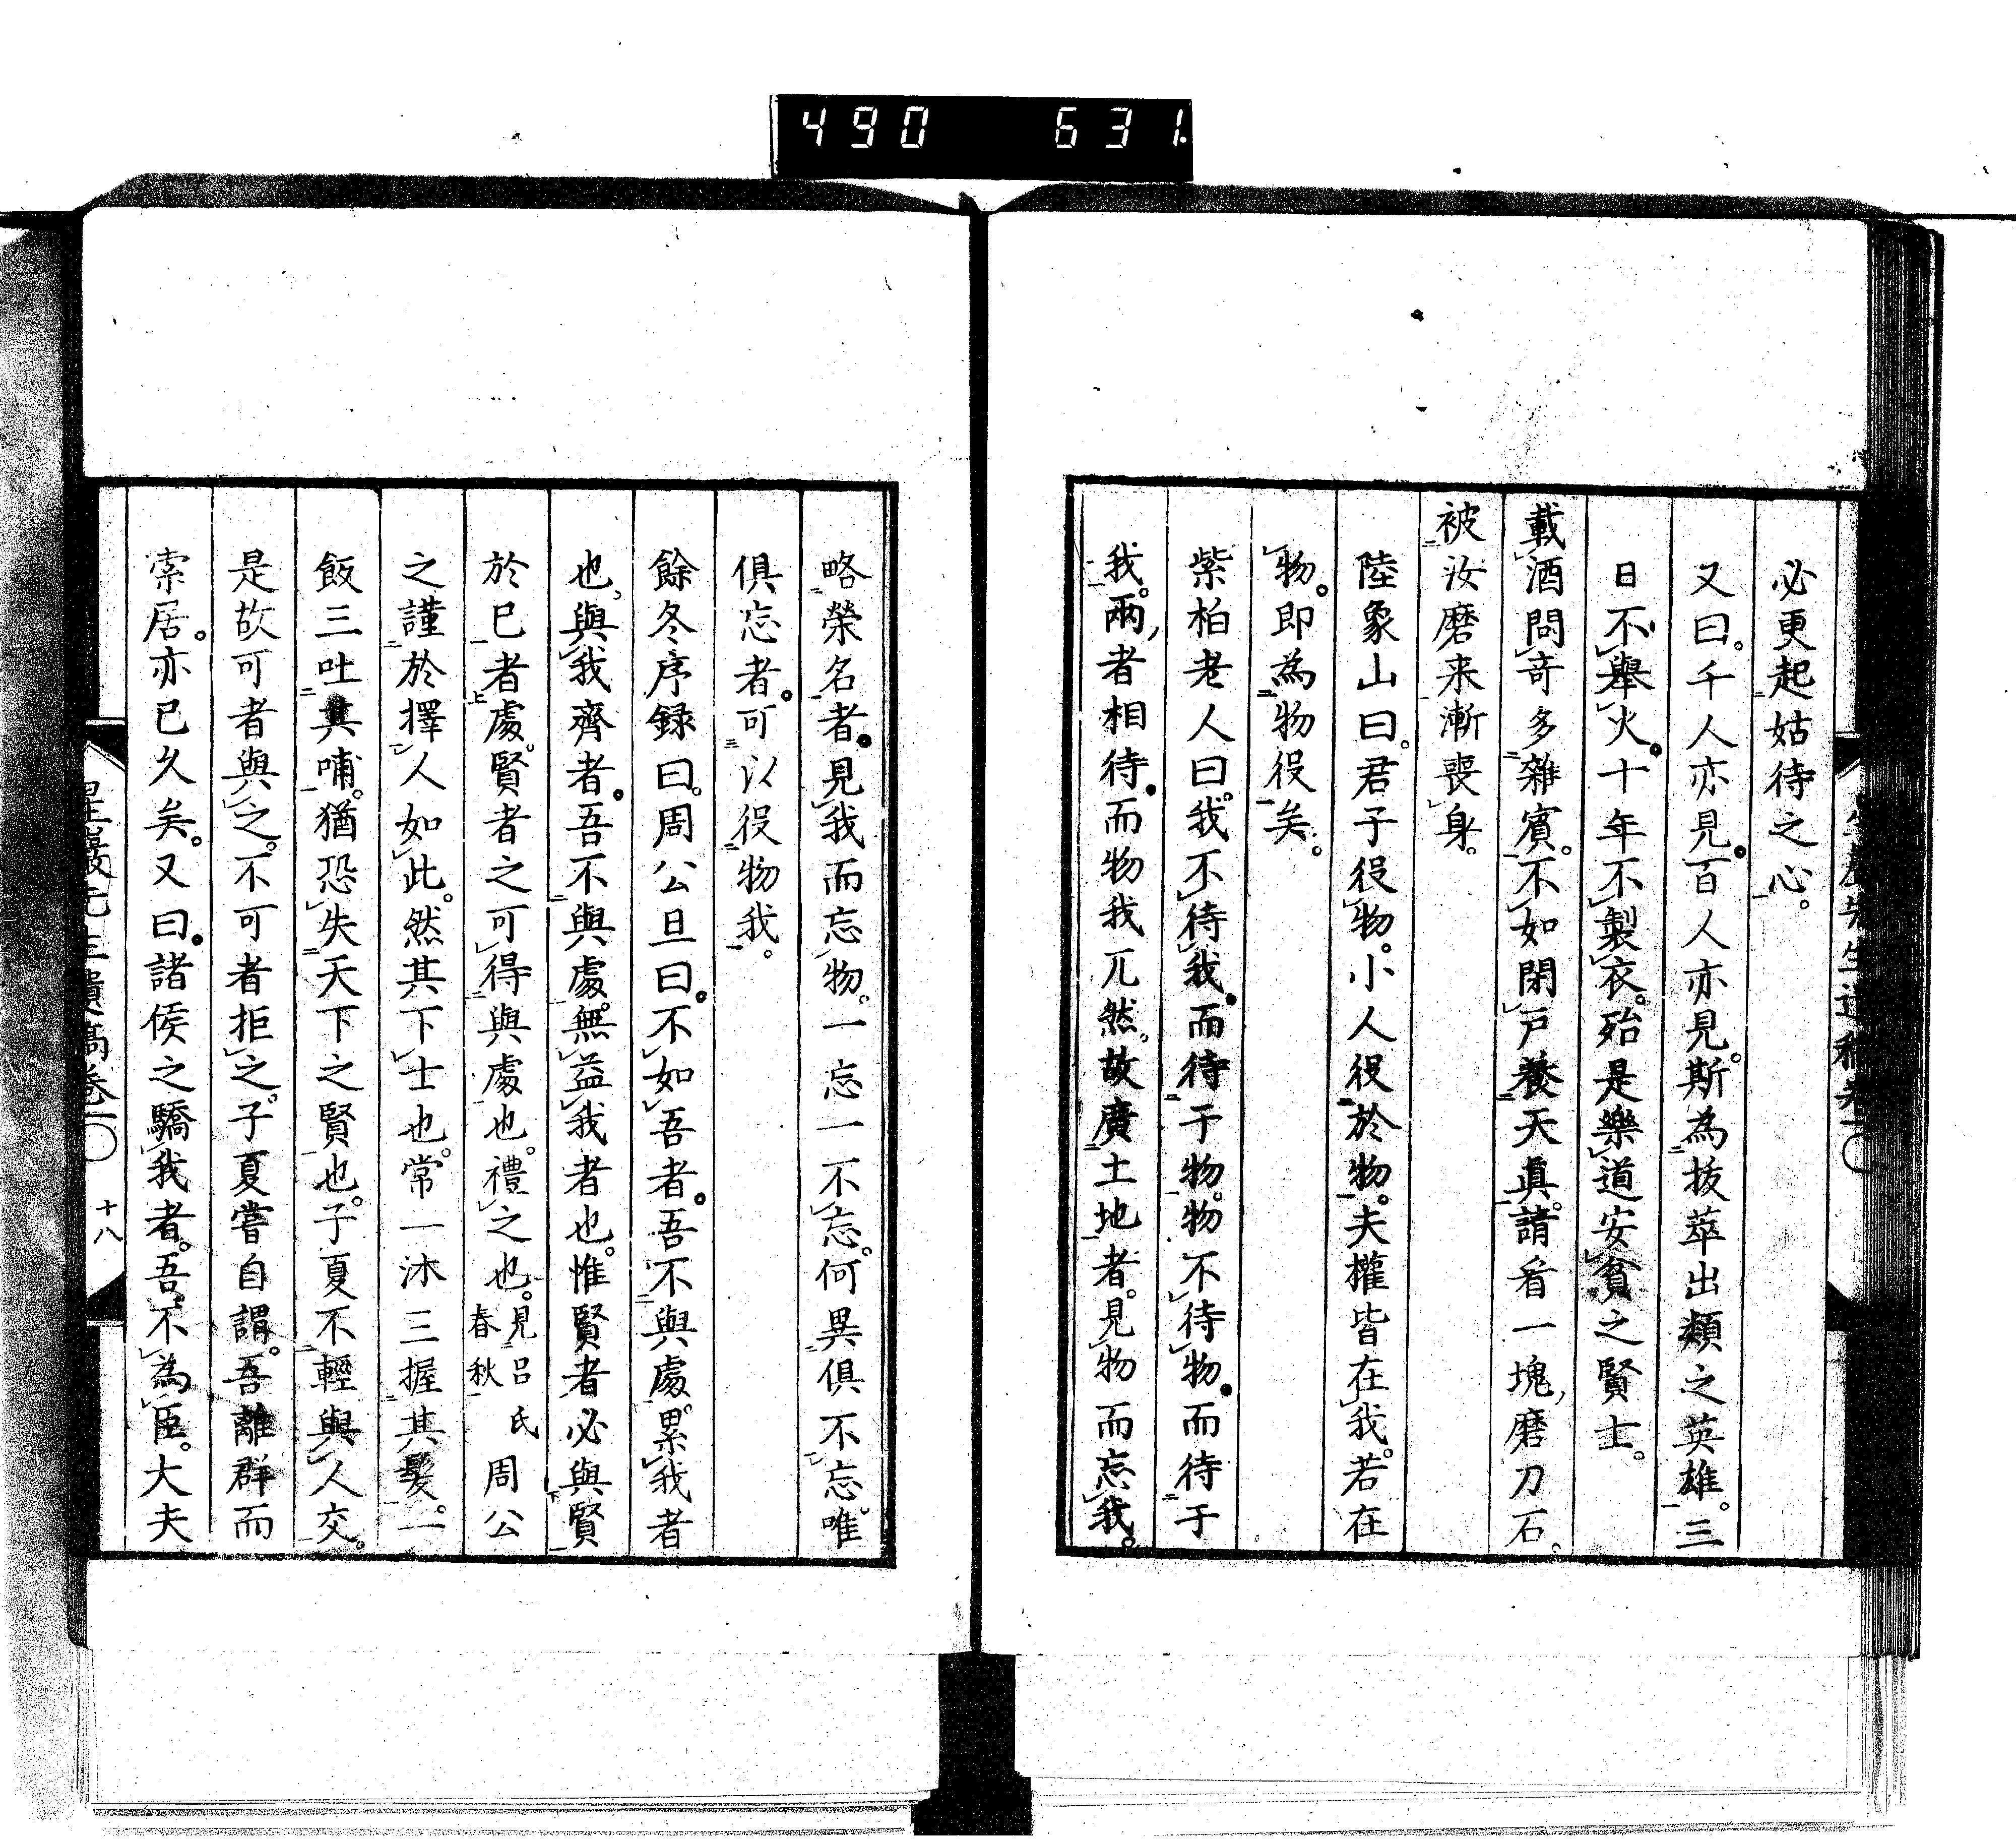 490 631
必更起姑待之心。
又曰。千人亦見。百人亦見。斯為抜萃出類之英雄。三
日不舉火。十年不製衣。殆是樂道安貧之賢士。
載酒問竒多雜賓。不如閉戸養天眞。請看一塊磨刀石。
被汝磨来漸喪身。
陸象山曰。君子役物。小人役於物。夫權皆在我。若在
物。即為物役矣。
紫柏老人曰。我不待我。而待于物。物不待物。而待于
我。兩者相待。而物我兀然。故廣土地者。見物而忘我。
略榮名者。見我而忘物。一忘一不忘。何異俱不忘。唯
俱忘者。可以役物我。
餘冬序録曰。周公旦曰。不如吾者。吾不與處。累我者
也、與我齊者。吾不與處。無益我者也。惟賢者必與賢
於已者處。賢者之可得與處也。禮之也。見呂氏春秋 周公
之謹於擇人如此。然其下士也。常一沐三握其髮。一
飯三吐其哺。猶恐失天下之賢也。子夏不輕與人交。
是故可者與之。不可者拒之。子夏嘗自謂。吾離群而
索居。亦已久矣。又曰。諸侯之驕我者。吾不為臣。大夫
星巖先生遺稿卷一〇 十八